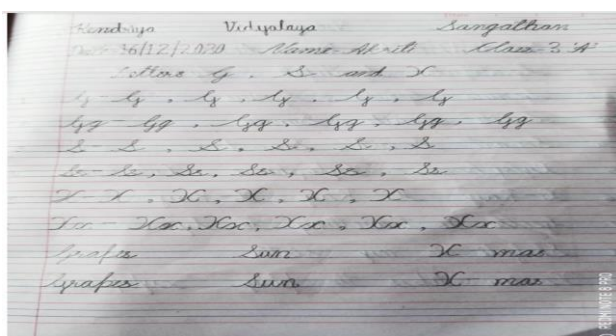 Kendriya Vidyalaya Sangathan
Date 16/12/2020 Name - Akriti Class 3 'A'
Letters G, S and X
G - G, G, G, G, G
Gg - Gg, Gg, Gg, Gg, Gg
S - S, S, S, S, S
Ss - Ss, Ss, Ss, Ss, Ss
X - X, X, X, X, X
Xx - Xx, Xx, Xx, Xx, Xx
Grapes Sun X mas
Grapes Sun X mas